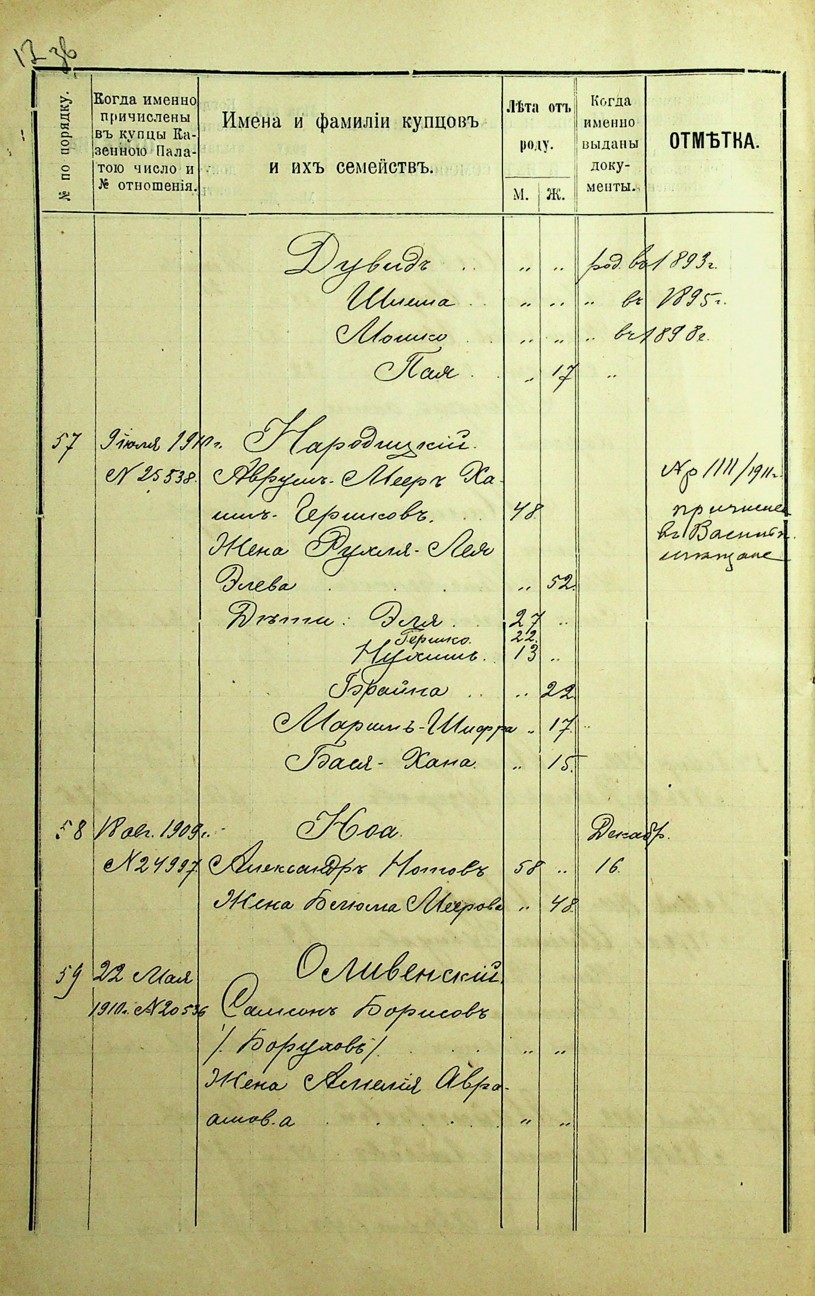 № по порядку.
Когда именно
причислены
въ купцы Ка-
зенною Пала-
тою число и
№ отношенія.
Имена и фамиліи купцовъ
и ихъ семействъ.
Лѣта отъ
роду.
М. Ж.
Когда
именно
выданы
доку-
менты.
ОТМѢТКА.
Дувидъ . . „ „ род. въ 1893 г.
Шлема . . „ „ „ въ 1895 г.
Мошко . . „ „ „ въ 1898 г.
Пая . „ 17 „
57 9 іюля 1910 г. Народицкій.
№ 25538. Аврумъ-Мееръ Ха-
имъ-Гершковъ. . . 48
Жена Рухля-Лея
Элева . . . „ 52.
Дѣти: Эля . . 27 „
Гершко 22.
Нухимъ . . 13 „
Брайна . . „ 22
Маримъ-Шифра „ 17. „
Бася-Хана „ 15.
№ 1111/1911 г.
причислен
въ Васильк.
мещане
58 18 авг. 1909 г. Ноа. Декабр.
№ 24997 Александръ Нотовъ 58 „ 16.
Жена Блюма Меерова „ 48
59 22 Мая Оливенскій.
1910 г. № 20536 Самсонъ Борисовъ
/. Боруховъ /. . . . „ „
Жена Амелія Авра-
амов.а . . . . . „ „